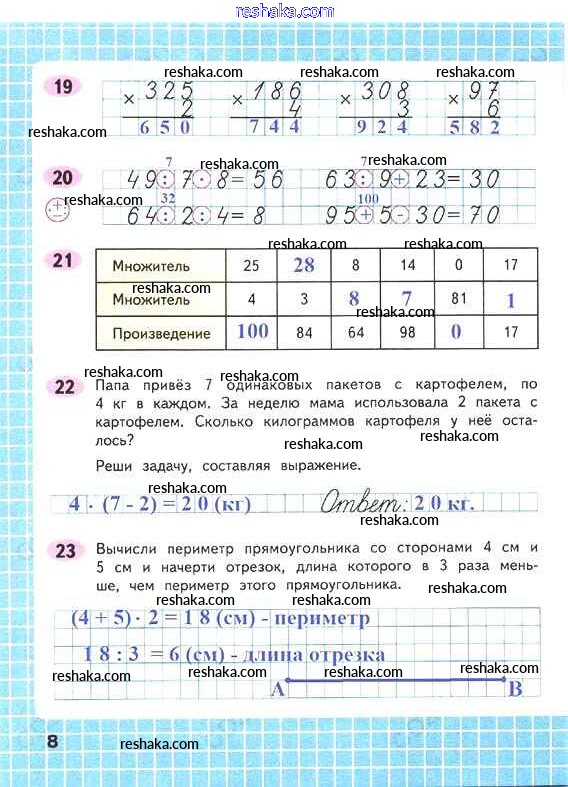 reshaka.com
reshaka.com reshaka.com
19 325 186 308 97
× 2 × 4 × 3 × 6
reshaka.com
650 744 924 582
7 reshaka.com 7 reshaka.com
20 49 : 7 · 8 = 56 63 : 9 + 23 = 30
reshaka.com 32 100
64 : 2 : 4 = 8 95 + 5 - 30 = 70
reshaka.com
21 Множитель 25 28 8 14 0 17
reshaka.com
Множитель 4 3 8 7 81 1
reshaka.com
Произведение 100 84 64 98 0 17
reshaka.com reshaka.com
22 Папа привёз 7 одинаковых пакетов с картофелем, по
4 кг в каждом. За неделю мама использовала 2 пакета с
картофелем. Сколько килограммов картофеля у неё оста-
лось?
reshaka.com
Реши задачу, составляя выражение.
reshaka.com
4 · (7 - 2) = 20 (кг) Ответ: 20 кг.
reshaka.com reshaka.com
23 Вычисли периметр прямоугольника со сторонами 4 см и
5 см и начерти отрезок, длина которого в 3 раза мень-
ше, чем периметр этого прямоугольника.
reshaka.com reshaka.com
(4 + 5) · 2 = 18 (см) - периметр
reshaka.com
18 : 3 = 6 (см) - длина отрезка
reshaka.com reshaka.com reshaka.com
А В
8 reshaka.com reshaka.com